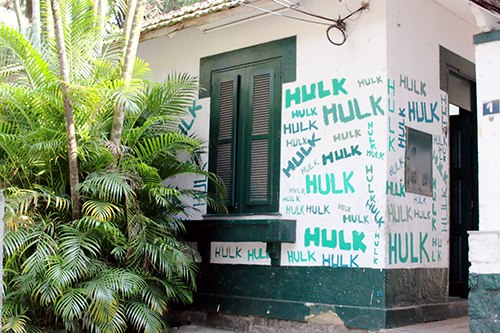 HULK
HULK
HULK HULK
HULK
HULK HULK
HULK HULK
HULK
HULK
HULK HULK
HULK
HULK HULK
HULK HULK
HULK
HULK
HULK
HULK
HULK HULK
HULK
HULK
HULK
HULK HULK
HULK
HULK
HULK